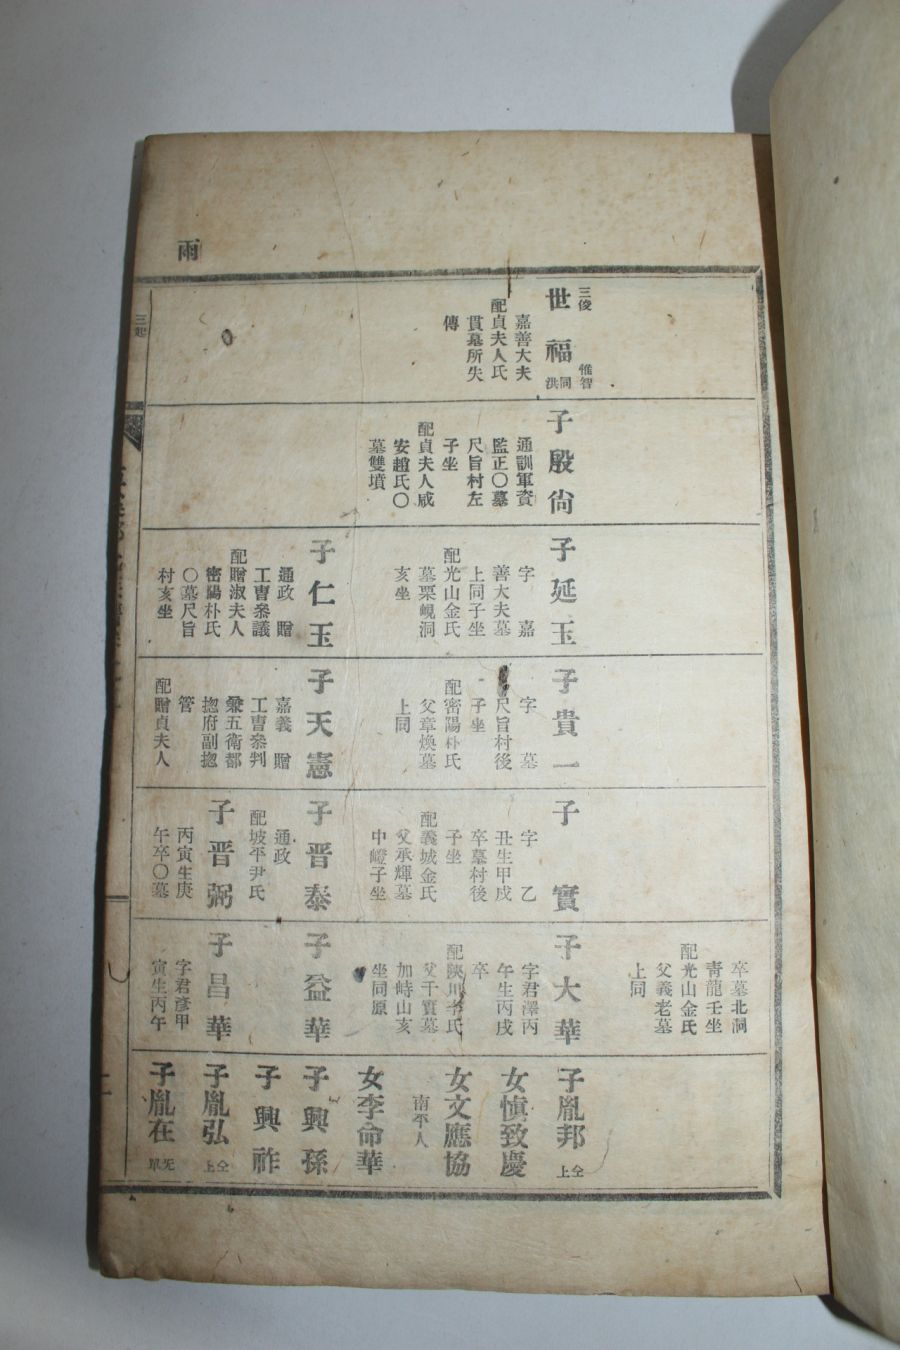 雨
三俊
世福
惟智
同洪
嘉善大夫
配貞夫人氏
貫墓所失
傳
子殷尙
通訓軍資
監正〇墓
尺旨村左
子坐
配貞夫人咸
安趙氏〇
墓雙墳
子延玉
字　嘉
善大夫墓
上同子坐
配光山金氏
墓栗峴洞
亥坐
子仁玉
通政　贈
工曹參議
配贈淑夫人
密陽朴氏
〇墓尺旨
村亥坐
子貴一
字　墓
尺旨村後
子坐
配密陽朴氏
父章煥墓
上同
子天憲
嘉義　贈
工曹參判
兼五衛都
揔府副揔
管
配贈貞夫人
子　實
字　乙
丑生甲戌
卒墓村後
子坐
配義城金氏
父承輝墓
中嶝子坐
子晋泰
通政
配坡平尹氏
子晋弼
丙寅生庚
午卒〇墓
卒墓北洞
靑龍壬坐
配光山金氏
父義老墓
上同
子大華
字君澤丙
午生丙戌
卒
配陜川李氏
父干實墓
加峙山亥
坐同原
子益華
子昌華
字君彦甲
寅生丙午
子胤邦
仝上
女愼致慶
女文應協
南平人
女李命華
子興孫
子興祚
子胤弘
仝上
子胤在
无單